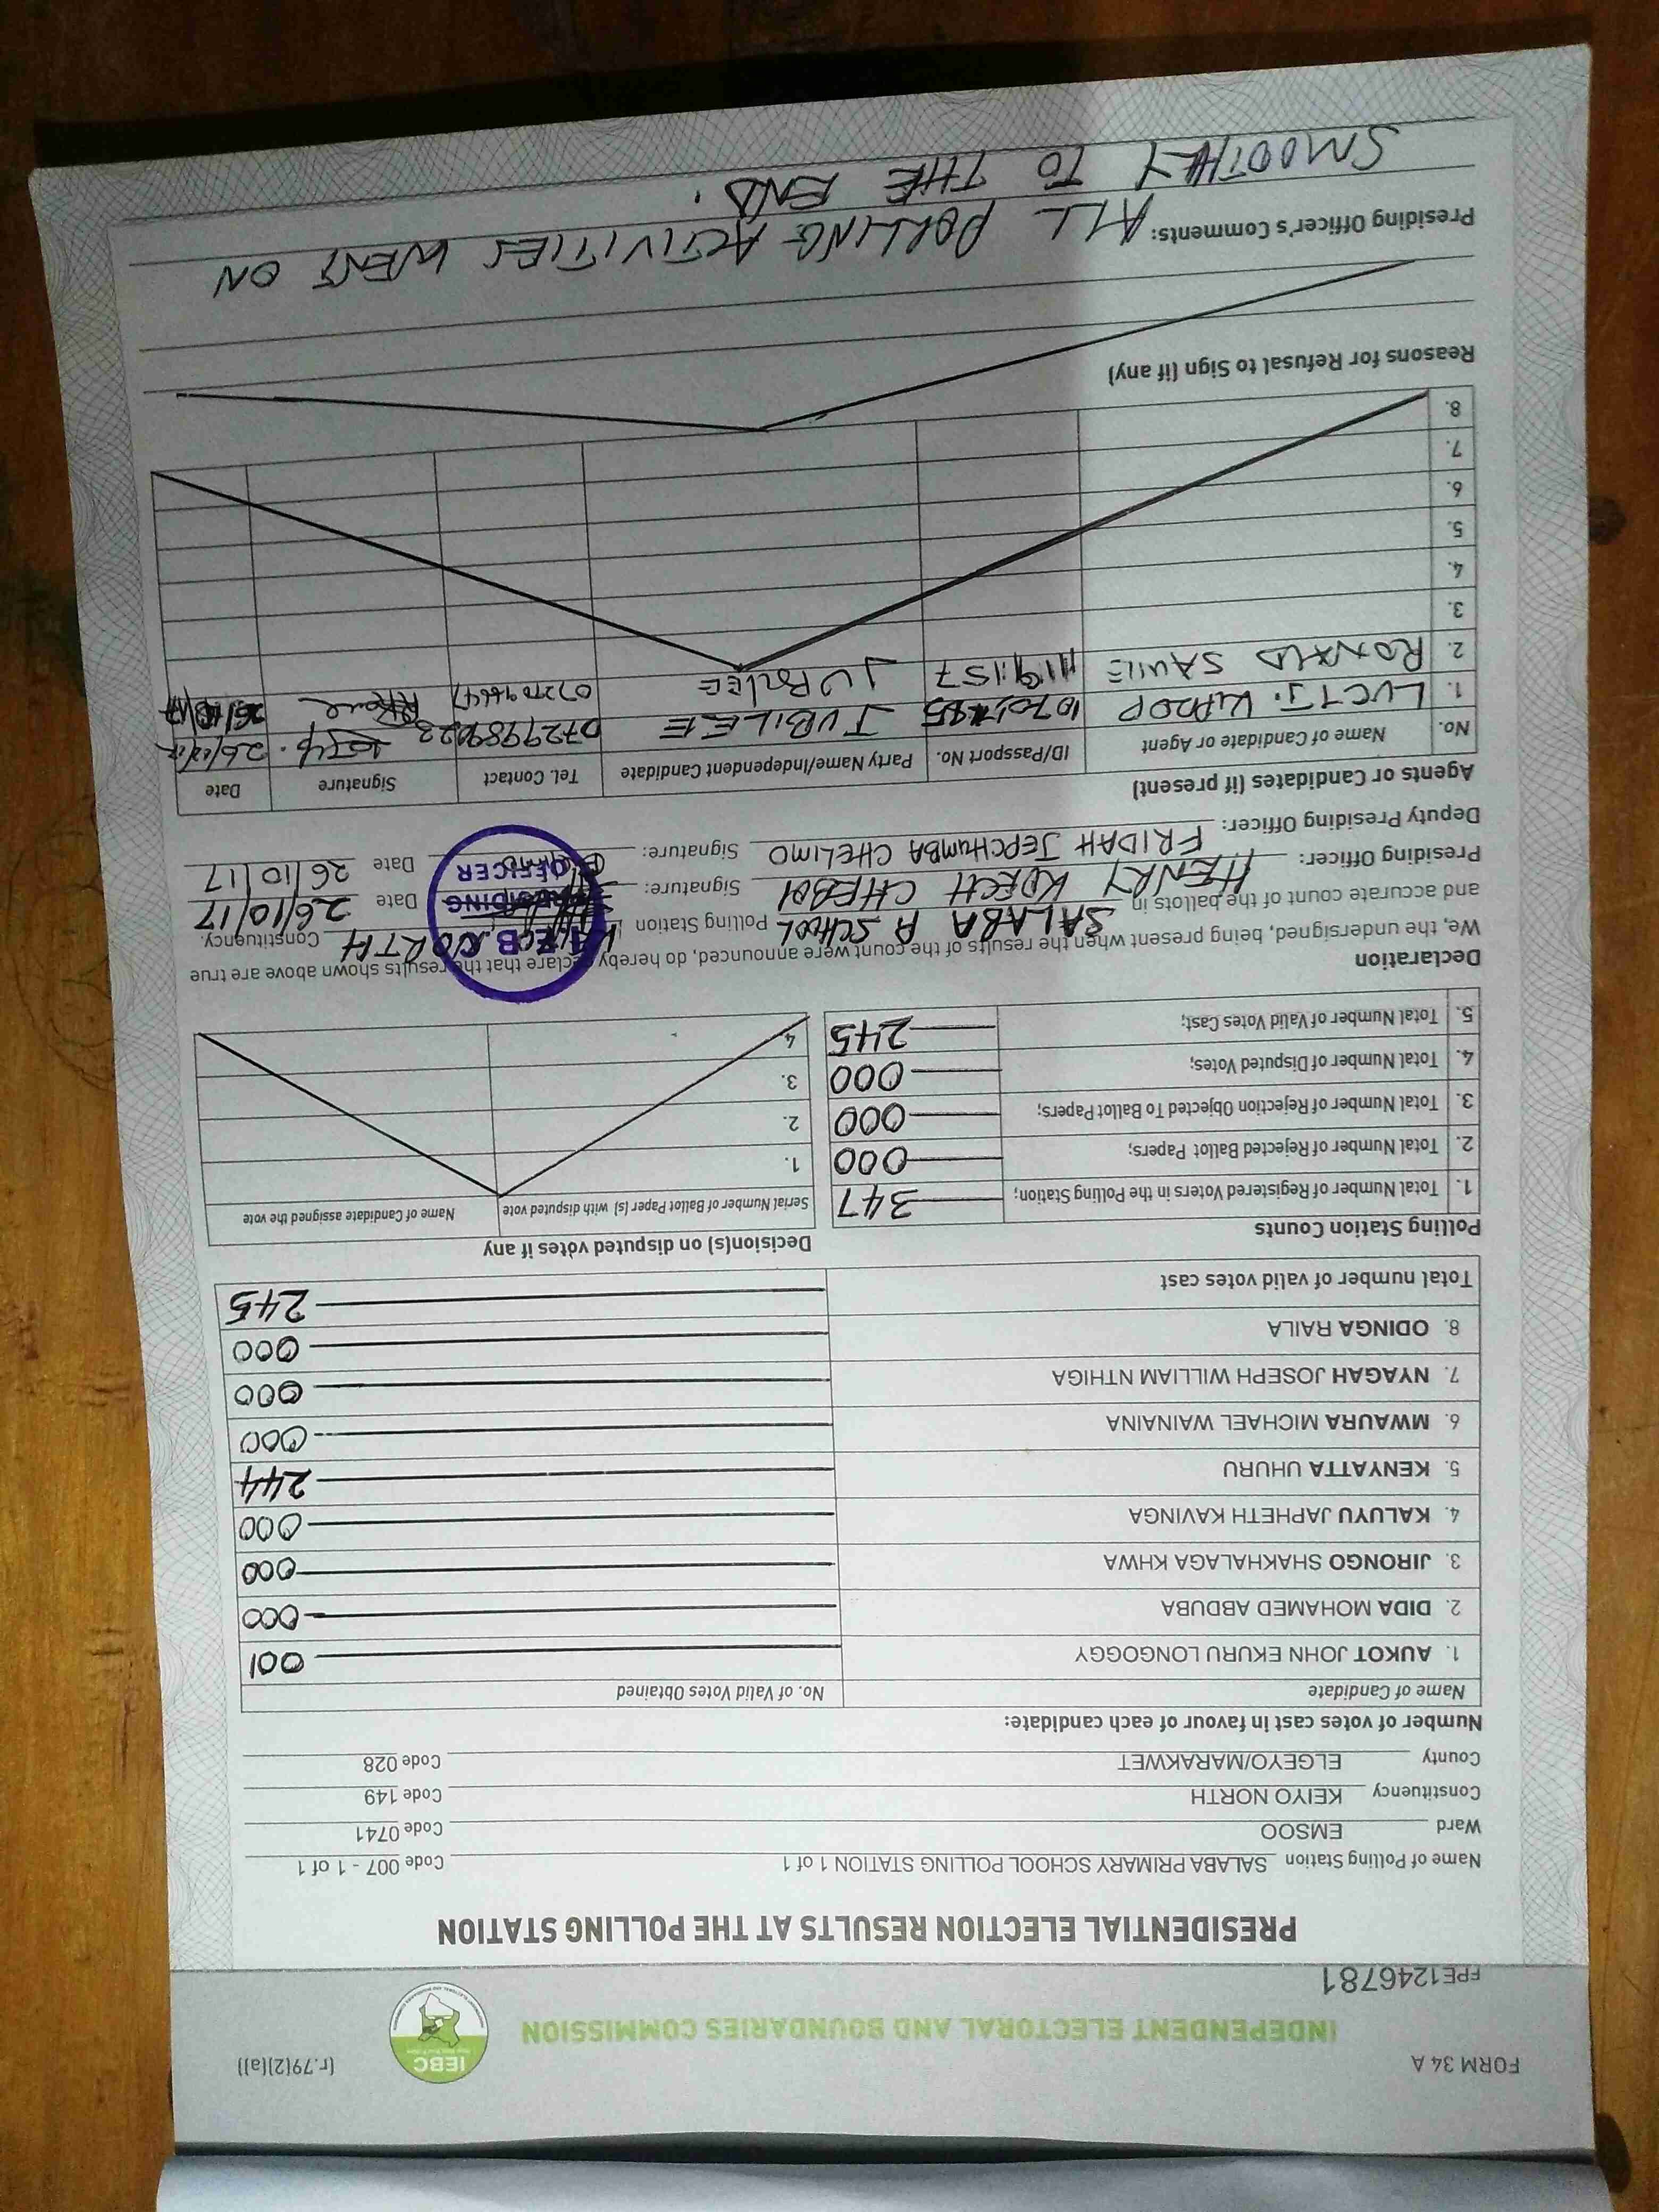 FORM 34 A
(r.79(2)(a))
IEBC
INDEPENDENT ELECTORAL AND BOUNDARIES COMMISSION
FPE1246781
PRESIDENTIAL ELECTION RESULTS AT THE POLLING STATION
Name of Polling Station SALABA PRIMARY SCHOOL POLLING STATION 1 of 1 Code 007 - 1 of 1
Ward EMSOO Code 0741
Constituency KEIYO NORTH Code 149
County ELGEYO/MARAKWET Code 028
Number of votes cast in favour of each candidate:
Name of Candidate No. of Valid Votes Obtained
1. AUKOT JOHN EKURU LONGOGGY 001
2. DIDA MOHAMED ABDUBA 000
3. JIRONGO SHAKHALAGA KHWA 000
4. KALUYU JAPHETH KAVINGA 000
5. KENYATTA UHURU 244
6. MWAURA MICHAEL WAINAINA 000
7. NYAGAH JOSEPH WILLIAM NTHIGA 000
8. ODINGA RAILA 000
Total number of valid votes cast 245
Polling Station Counts
1. Total Number of Registered Voters in the Polling Station; 347
2. Total Number of Rejected Ballot Papers; 000
3. Total Number of Rejection Objected To Ballot Papers; 000
4. Total Number of Disputed Votes; 000
5. Total Number of Valid Votes Cast; 245
Decision(s) on disputed votes if any
Serial Number of Ballot Paper (s) with disputed vote Name of Candidate assigned the vote
1.
2.
3.
4
Declaration
We, the undersigned, being present when the results of the count were announced, do hereby declare that the results shown above are true
and accurate count of the ballots in SALABA P SCHOOL Polling Station NORTH Constituency.
Presiding Officer: HENRY KOECH CHEBOI Signature: Date 26/10/17
Deputy Presiding Officer: FRIDAH JEPCHUMBA CHELIMO Signature: Date 26/10/17
PRESIDING
OFFICER
Agents or Candidates (if present)
No. Name of Candidate or Agent ID/Passport No. Party Name/Independent Candidate Tel. Contact Signature Date
1. KIPROP JUBILEE 26/10/17
2. RONALD JUBILEE
3.
4.
5.
6.
7.
8.
Reasons for Refusal to Sign (if any)
Presiding Officer's Comments: ALL POLLING ACTIVITIES WENT ON
SMOOTHLY TO THE END.